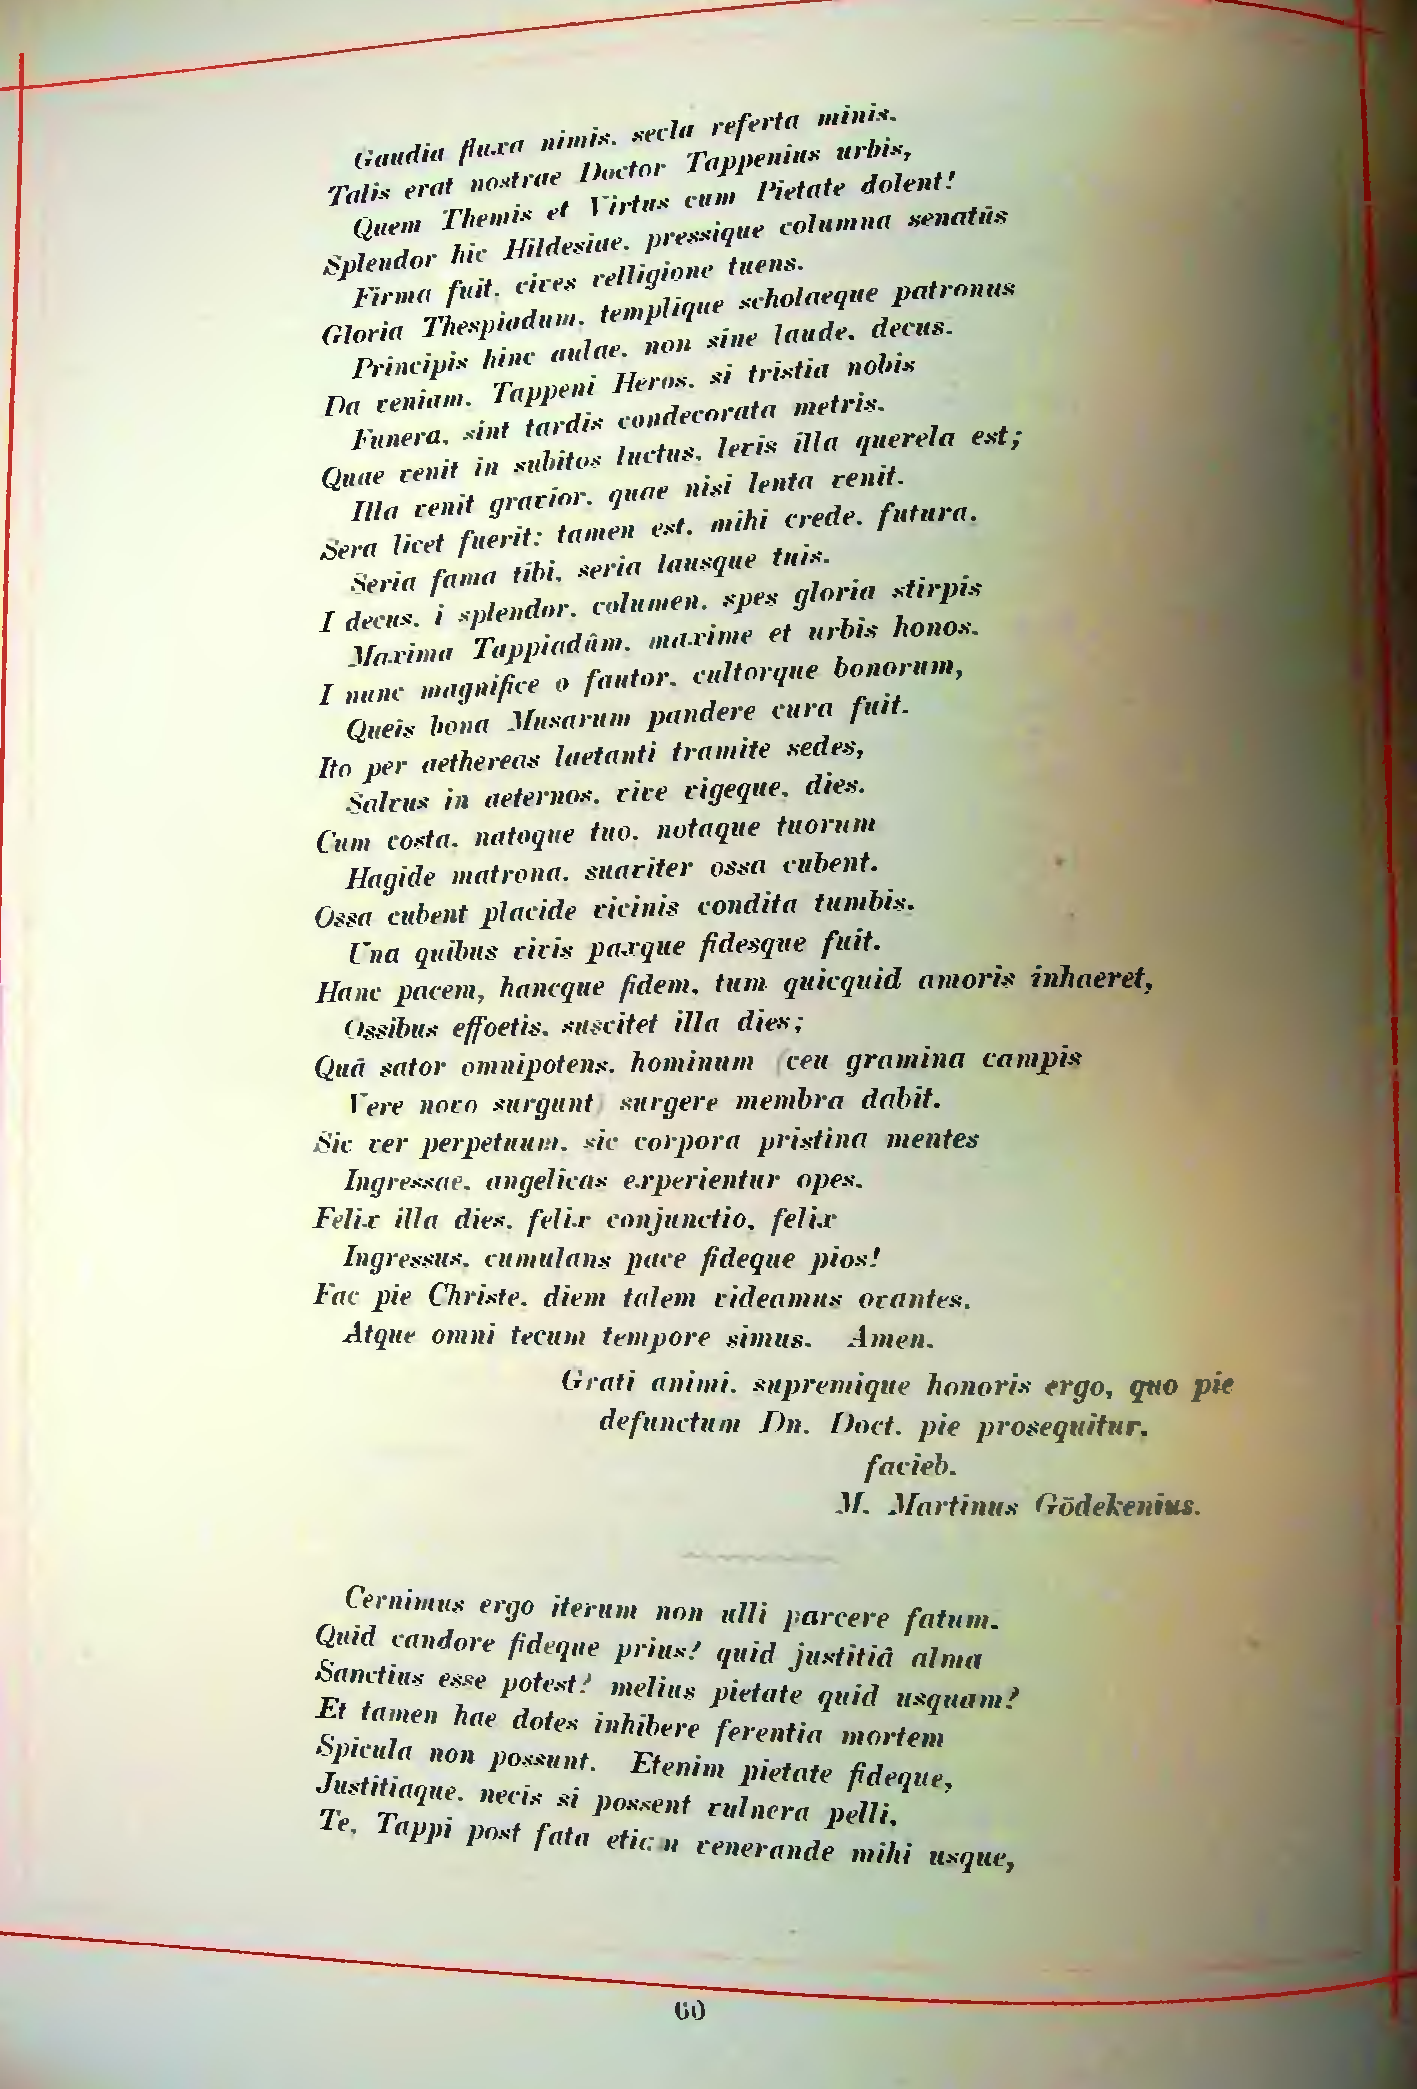 Gaudia fluxa nimis, secla referta minis.
Talis erat nostrae Doctor Tappenius urbis,
Quem Themis et Virtus cum Pietate dolent!
Splendor hic Hildesiae, pressique columna senatûs
Firma fuit, cives relligione tuens.
Gloria Thespiadum, templique scholaeque patronus
Principis hinc aulae, non sine laude, decus.
Da veniam, Tappeni Heros, si tristia nobis
Funera, sint tardis condecorata metris.
Quae venit in subitos luctus, levis illa querela est;
Illa venit gravior, quae nisi lenta venit.
Sera licet fuerit: tamen est, mihi crede, futura,
Seria fama tibi, seria lausque tuis.
I decus, i splendor, columen, spes gloria stirpis
Maxima Tappiadûm, maxime et urbis honos.
I nunc magnifice o fautor, cultorque bonorum,
Queîs bona Musarum pandere cura fuit.
Ito per aethereas laetanti tramite sedes,
Salvus in aeternos, vive vigeque, dies.
Cum costa, natoque tuo, notaque tuorum
Hagide matrona, suaviter ossa cubent.
Ossa cubent placide vicinis condita tumbis,
Una quibus vivis paxque fidesque fuit.
Hanc pacem, hancque fidem, tum quicquid amoris inhaeret,
Ossibus effoetis, suscitet illa dies;
Quâ sator omnipotens, hominum (ceu gramina campis
Vere novo surgunt) surgere membra dabit.
Sic ver perpetuum, sic corpora pristina mentes
Ingressae, angelicas experientur opes.
Felix illa dies, felix conjunctio, felix
Ingressus, cumulans pace fideque pios!
Fac pie Christe, diem talem videamus ovantes,
Atque omni tecum tempore simus. Amen.
Grati animi, supremique honoris ergo, quo pie
defunctum Dn. Doct. pie prosequitur,
facieb.
M. Martinus Gödekenius.
Cernimus ergo iterum non ulli parcere fatum.
Quid candore fideque prius? quid justitiâ alma
Sanctius esse potest? melius pietate quid usquam?
Et tamen hae dotes inhibere ferentia mortem
Spicula non possunt. Etenim pietate fideque,
Justitiaque, necis si possent vulnera pelli,
Te, Tappi post fata etiam venerande mihi usque,
60